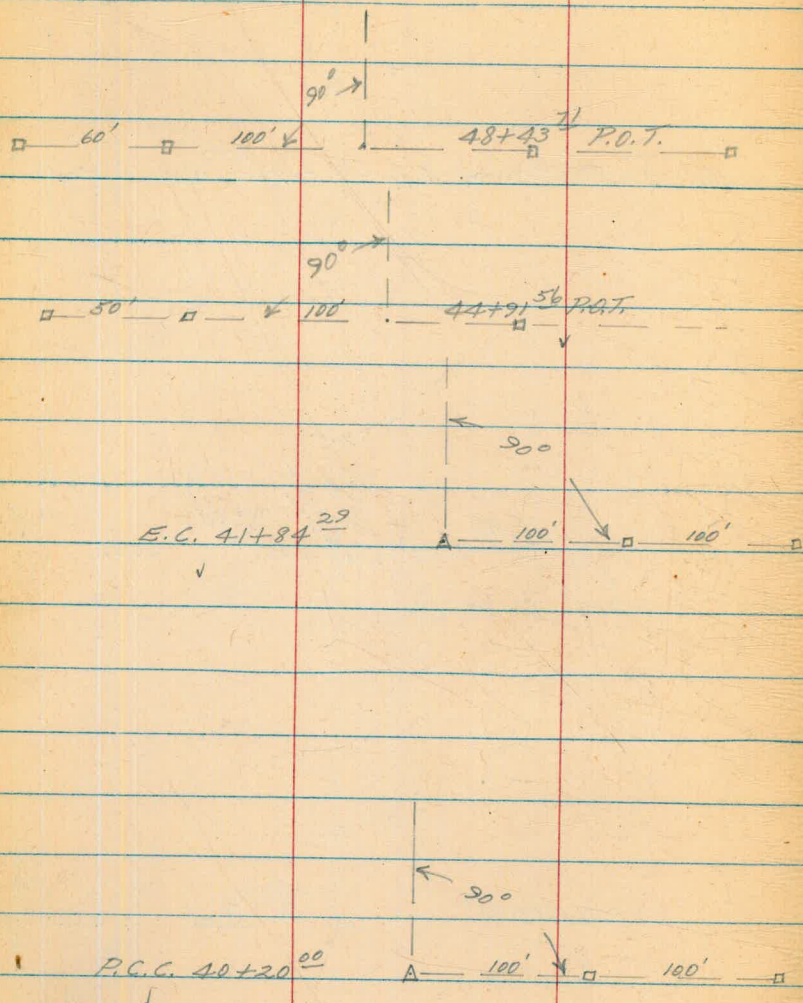 90°
60' 100' 48+43 71 P.O.T.
90°
50' 100' 44+91 56 P.O.T.
90°
E.C. 41+84 29 A 100' 100'
90°
P.C.C. 40+20 00 A 100' 100'